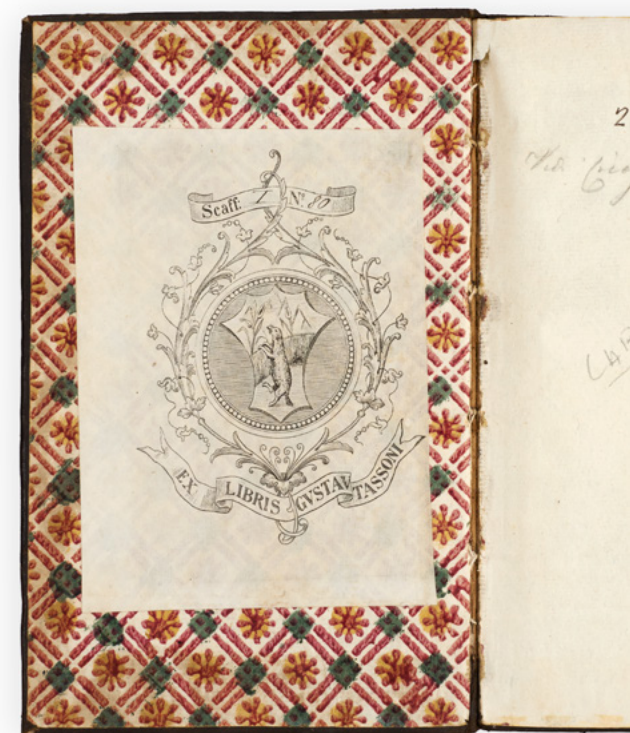 Scaff: I Nº 80
EX LIBRIS GVSTAV TASSONI
2